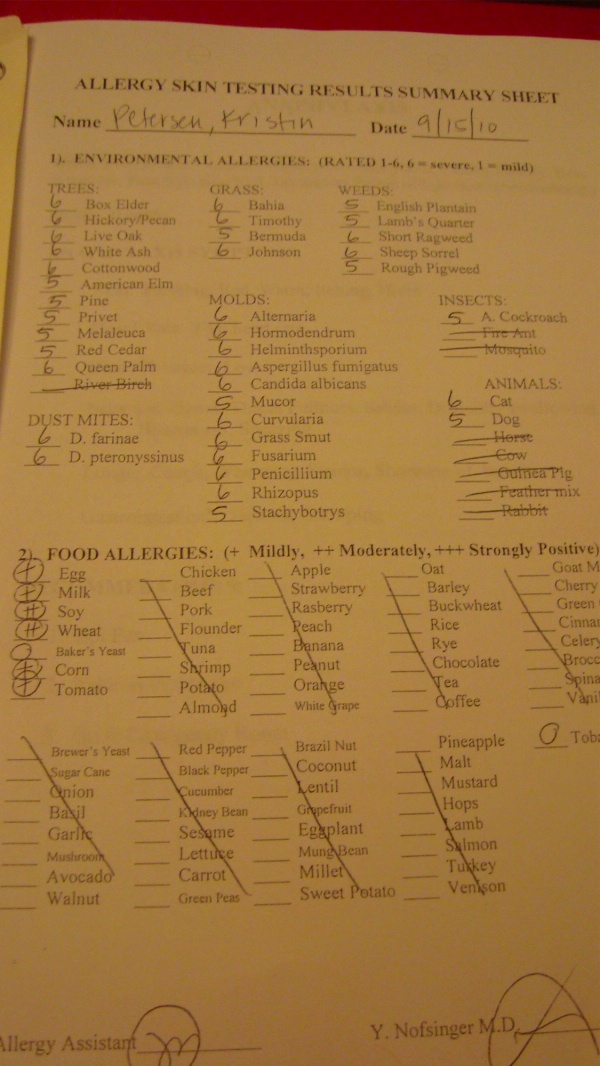 ALLERGY SKIN TESTING RESULTS SUMMARY SHEET
Name Petersen, Kristin Date 9/15/10
1). ENVIRONMENTAL ALLERGIES: (RATED 1-6, 6 = severe, 1 = mild)
TREES:
6 Box Elder
6 Hickory/Pecan
6 Live Oak
6 White Ash
6 Cottonwood
5 American Elm
5 Pine
5 Privet
5 Melaleuca
5 Red Cedar
6 Queen Palm
River Birch
DUST MITES:
6 D. farinae
6 D. pteronyssinus
GRASS:
6 Bahia
6 Timothy
5 Bermuda
6 Johnson
MOLDS:
6 Alternaria
6 Hormodendrum
6 Helminthsporium
6 Aspergillus fumigatus
6 Candida albicans
5 Mucor
6 Curvularia
6 Grass Smut
6 Fusarium
6 Penicillium
6 Rhizopus
5 Stachybotrys
WEEDS:
5 English Plantain
5 Lamb's Quarter
6 Short Ragweed
6 Sheep Sorrel
5 Rough Pigweed
INSECTS:
5 A. Cockroach
Fire Ant
Mosquito
ANIMALS:
6 Cat
5 Dog
Horse
Cow
Guinea Pig
Feather mix
Rabbit
2). FOOD ALLERGIES: (+ Mildly, ++ Moderately, +++ Strongly Positive)
+ Egg
+ Milk
++ Soy
++ Wheat
0 Baker's Yeast
+ Corn
+ Tomato
Chicken
Beef
Pork
Flounder
Tuna
Shrimp
Potato
Almond
Apple
Strawberry
Rasberry
Peach
Banana
Peanut
Orange
White Grape
Oat
Barley
Buckwheat
Rice
Rye
Chocolate
Tea
Coffee
Goat M
Cherry
Green
Cinnar
Celery
Brocc
Spina
Vanil
Brewer's Yeast
Sugar Cane
Onion
Basil
Garlic
Mushroom
Avocado
Walnut
Red Pepper
Black Pepper
Cucumber
Kidney Bean
Sesame
Lettuce
Carrot
Green Peas
Brazil Nut
Coconut
Lentil
Grapefruit
Eggplant
Mung Bean
Millet
Sweet Potato
Pineapple
Malt
Mustard
Hops
Lamb
Salmon
Turkey
Venison
0 Toba
Allergy Assistant
Y. Nofsinger M.D.